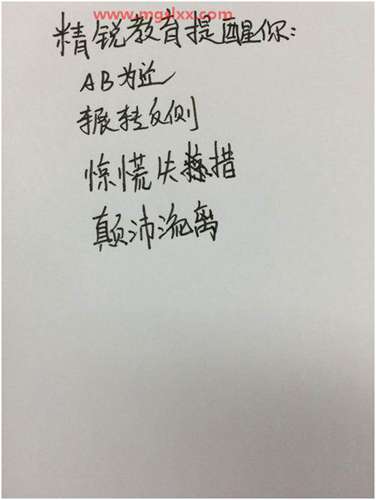 www.mgylxx.com
精锐教育提醒你:
AB为近
辗转反侧
惊慌失措
颠沛流离